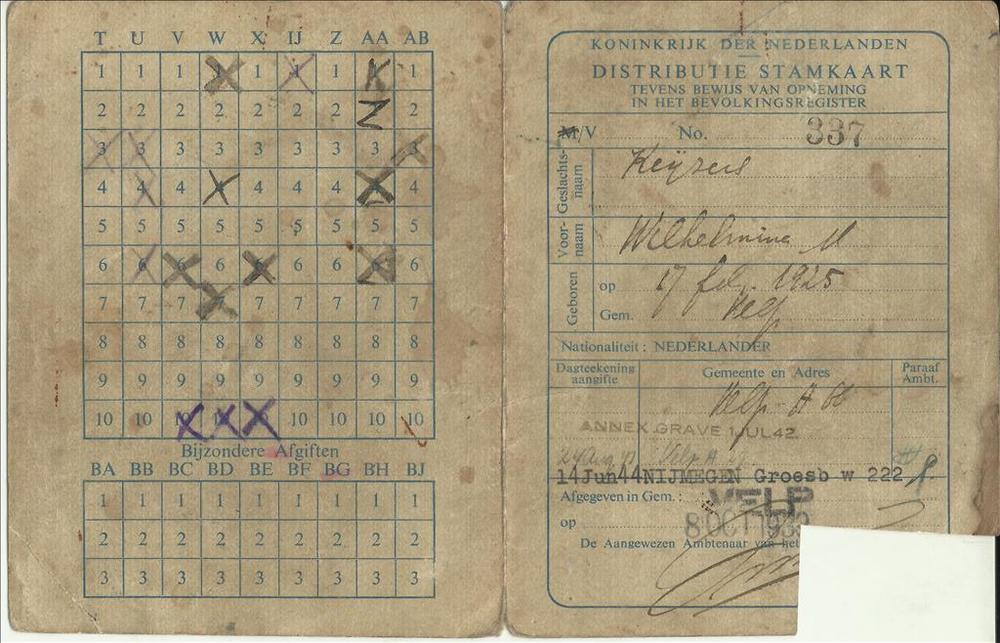 T U V W X IJ Z AA AB
1 1 1 1 1 1 1 K 1
2 2 2 2 2 2 2 N 2
3 3 3 3 3 3 3 3 3
4 4 4 4 4 4 4 4 4
5 5 5 5 5 5 5 5 5
6 6 6 6 6 6 6 6 6
7 7 7 7 7 7 7 7 7
8 8 8 8 8 8 8 8 8
9 9 9 9 9 9 9 9 9
10 10 10 10 10 10 10 10 10
Bijzondere Afgiften
BA BB BC BD BE BF BG BH BJ
1 1 1 1 1 1 1 1 1
2 2 2 2 2 2 2 2 2
3 3 3 3 3 3 3 3 3
KONINKRIJK DER NEDERLANDEN
DISTRIBUTIE STAMKAART
TEVENS BEWIJS VAN OPNEMING
IN HET BEVOLKINGSREGISTER
M/V No. 337
Geslachts-
naam
Keijzers
Voor-
naam
Wilhelmina M
Geboren
op 17 feb. 1925
Gem. Velp
Nationaliteit: NEDERLANDER
Dagteekening
aangifte
Gemeente en Adres
Paraaf
Ambt.
Velp A 66
ANNEX. GRAVE 1 JUL 42
Velp A
14Jun44NIJMEGEN Groesb w 222
Afgegeven in Gem.: VELP
op 8 OCT 1939
De Aangewezen Ambtenaar van het